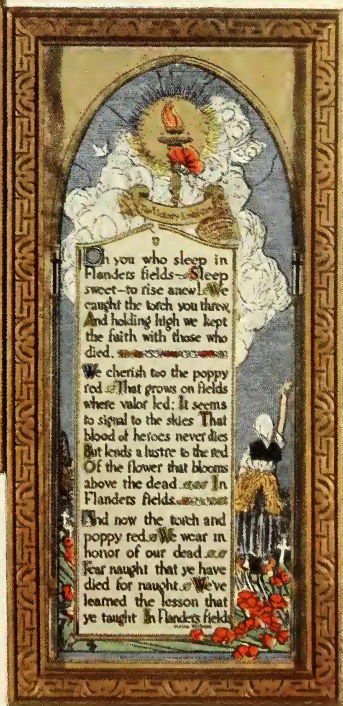 The Victory Emblem
Oh you who sleep in
Flanders fields Sleep
sweet–to rise anew! We
caught the torch you threw
And holding high we kept
the faith with those who
died.
We cherish too the poppy
red That grows on fields
where valor led; It seems
to signal to the skies That
blood of heroes never dies
But lends a lustre to the red
Of the flower that blooms
above the dead In
Flanders fields.
And now the torch and
poppy red We wear in
honor of our dead
Fear naught that ye have
died for naught. We've
learned the lesson that
ye taught In Flanders fields